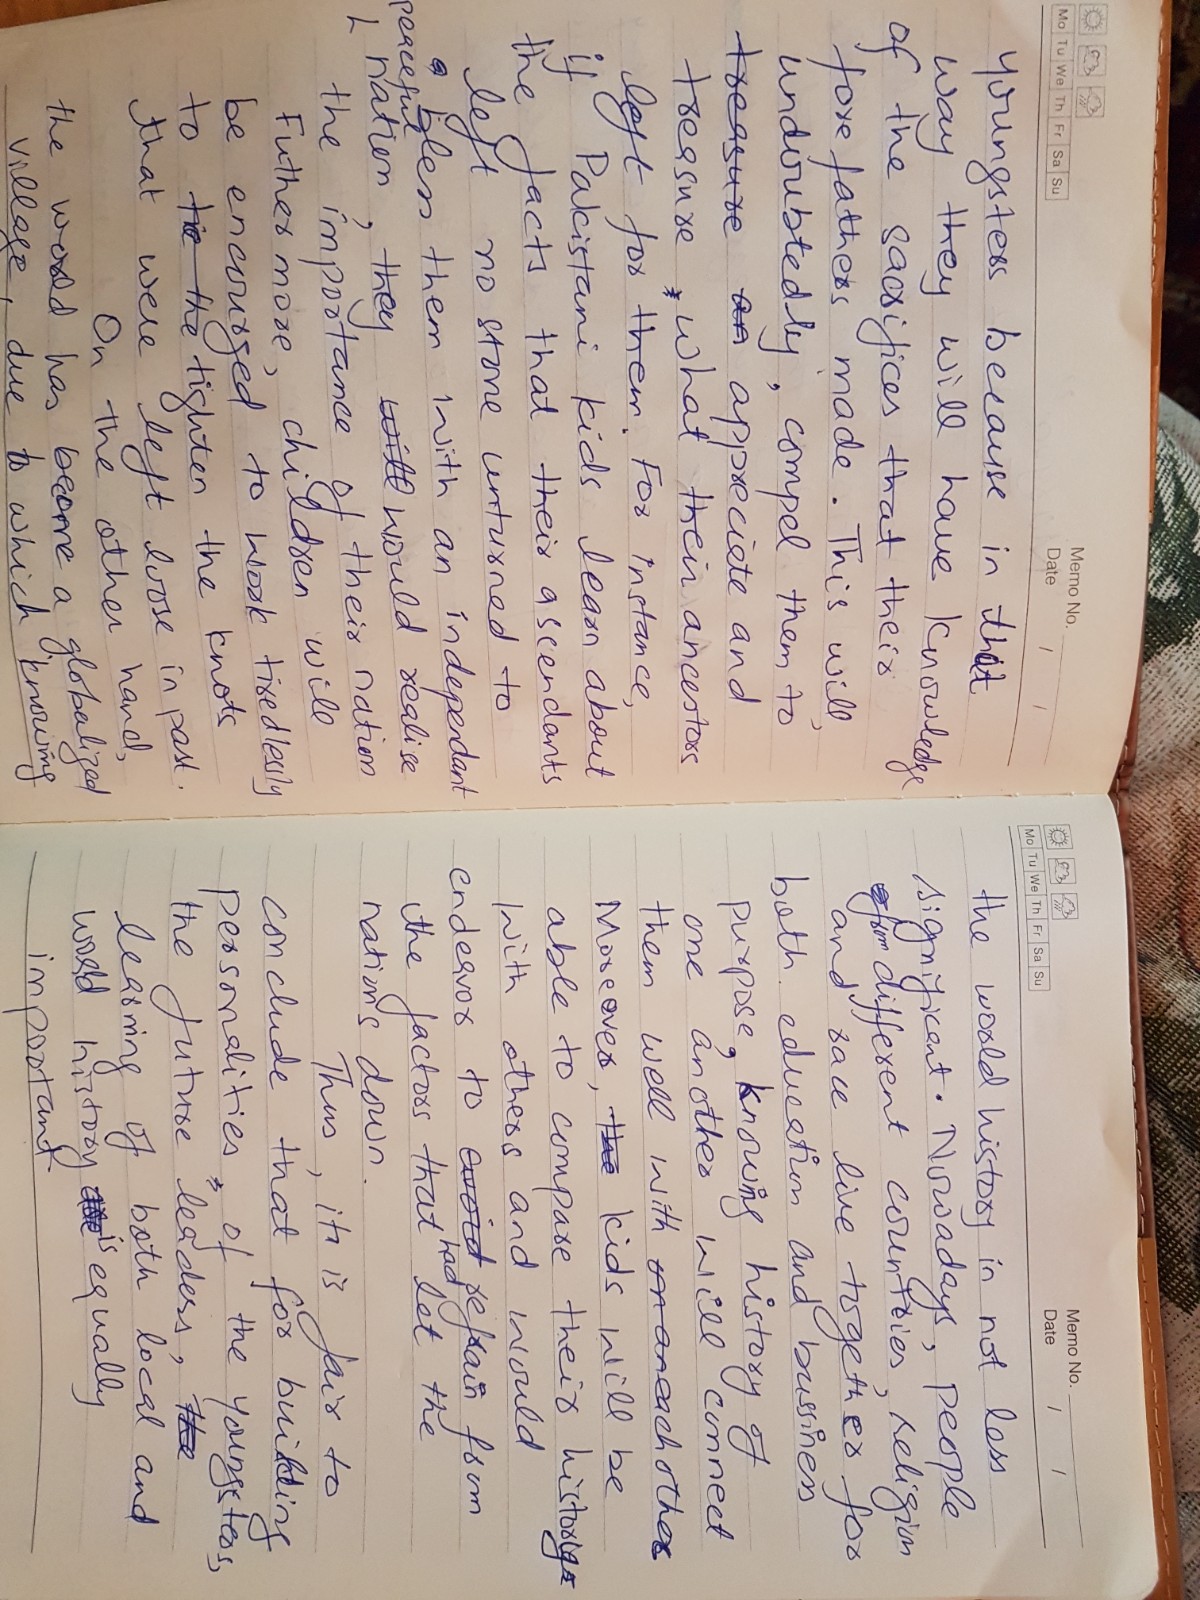 Mo Tu We Th Fr Sa Su
Memo No.
Date / /
youngsters because in that
way they will have knowledge
of the sacrifices that their
forefathers made. This will,
undoubtedly, compel them to
treasure an appreciate and
treasure what their ancestors
left for them. For instance,
if Pakistani kids learn about
the facts that their ascendants
left no stone unturned to
bless them with an independant
peaceful nation, they will would realise
the importance of their nation
Futhermore, children will
be encourged to work tiredlessly
to tie the tighten the knots
that were left loose in past.
On the other hand,
the world has become a globalized
village, due to which knowing
Mo Tu We Th Fr Sa Su
Memo No.
Date / /
the world history in not less
significant. Nowadays, people
from different countries, religion
and race live together for
both education and bussiness
purpose, knowing history of
one another will connect
them well with on aneach other
Moreover, the kids will be
able to compare their history
with others and would
endeavor to avoid refrain form
the factors that had let the
nations down.
Thus, it is fair to
conclude that for building
personalities of the youngsters,
the future leaders, the
learning of both local and
world history is equally
important